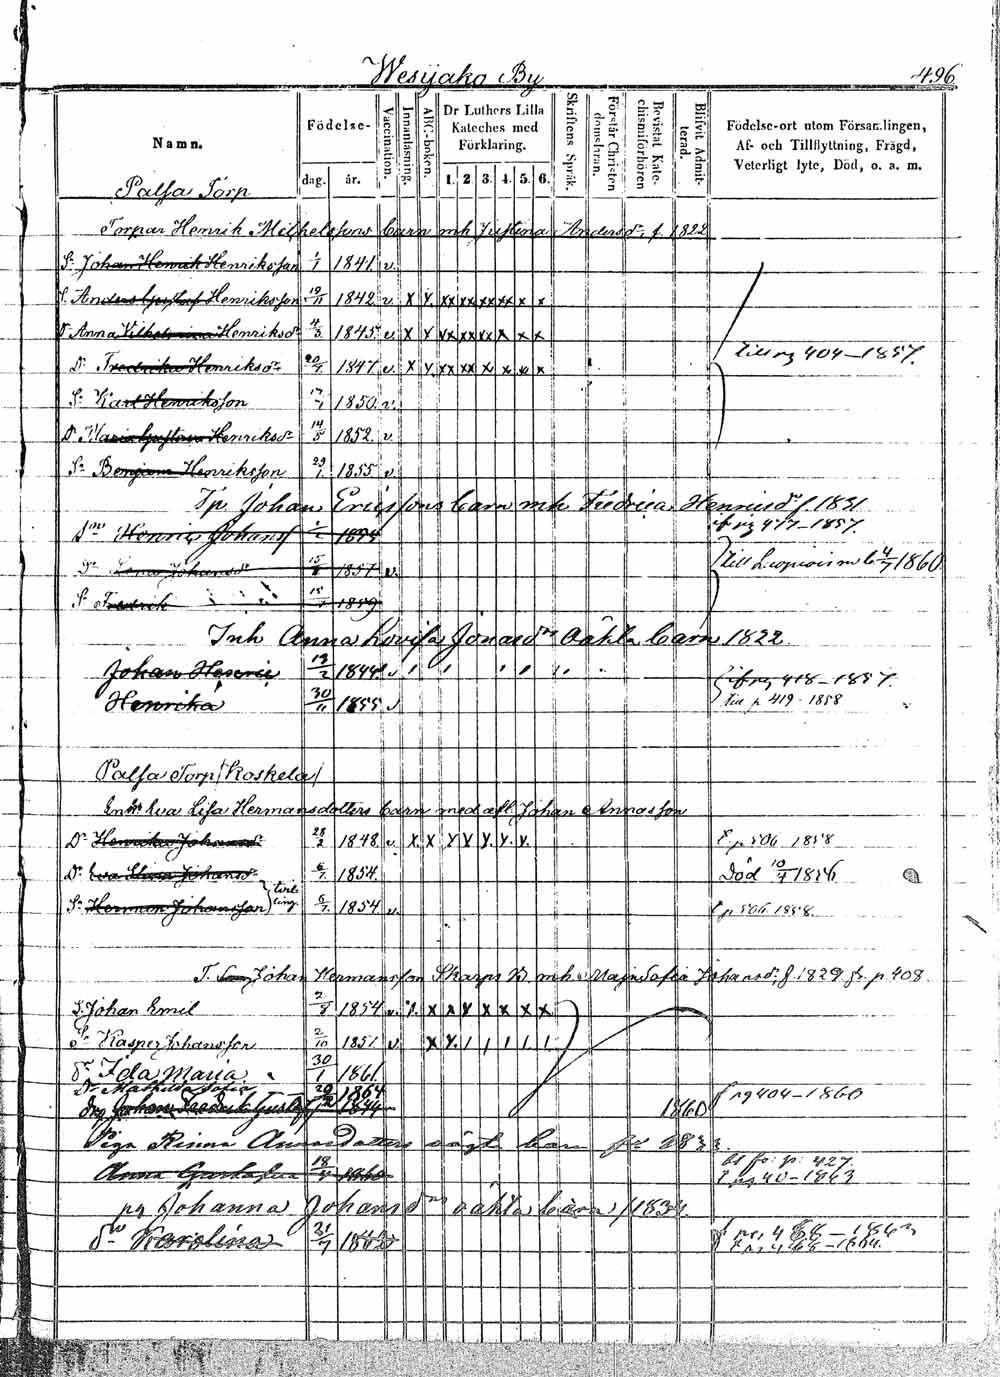 Wesijako By
496
Namn.
Födelse-
dag.
år.
Vaccination.
Innanläsning.
ABC-boken.
Dr Luthers Lilla
Kateches med
Förklaring.
1. 2. 3. 4. 5. 6.
Skriftens Språk.
Förstår Christen
domsläran.
Bevistat Kate-
chismiförhören
Blifvit Admit-
terad.
Födelse-ort utom Församlingen,
Af- och Tillflyttning, Frägd,
Veterligt lyte, Död, o. a. m.
Palsa Torp
Torpar Henrik Mikhelssons barn mh Justina Andersdr f. 1822
Sn Johan Henrik Henriksson 1/1 1841 v.
S. Anders Gustaf Henriksson 19/11 1842 v x x xx xx xx xx x x
Dr Anna Vilhelmina Henriksdr 4/3 1845 v x x xx xx xx x x x
Dr Fredrika Henriksdr 20/7 1847 v. x x xx xx x x x x till pg 404-1857.
Sn Karl Henriksson 17/1 1850 v.
Dr Maria Gustava Henriksdr 14/5 1852. v
Sn Benjam Henriksson 29/1 1855 v
Tp Johan Ericssons barn mh Fredrica Henricsdr f. 1831
Henric Johans 1854 if pg 477-1857.
Dr Lena Johansdr 15/8 1857 v. till 4/7 1860
Sn Fredrik 15 1859
Inh Anna Lovisa Jonasdrs oäkta barn 1822
Johan Henric 19/2 1844 v if pg 418-1857.
Henrika 30/11 1855 v till p 419-1858
Palsa Torp Koskela
Enk Eva Lisa Hermansdotters barn med afl. Johan Annasson
Dr Henrika Johansdr 28/2 1848 v x x x x x x x t p 506 1858
Dr Eva Stina Johansdr 6/7 1854. Död 10/7 1856
Sn Herman Johansson tvil ling. 6/7 1854 v. t p 506. 1858.
T. Johan Hermansson Skarps B. mh Maja Sofia Johansdr f. 1829 fr. p. 408
S. Johan Emil 2/8 1854 v. x x x x x x x
Sn Kasper Johansson 2/10 1851 v x x
Dr Ida Maria 30/1 1861
Dr Mathilda Sofia 20 1864 f pg 404-1860
Johan Fredrik Gustaf 1844 1860
Piga Rinna Annasdotters oägt barn fr 1833.
Anna Gustafva 18 1860 427 40-1863
pg Johanna Johansdrs oäkta barn f 1834.
Dr Karolina 21/7 468-1863
468-1864.